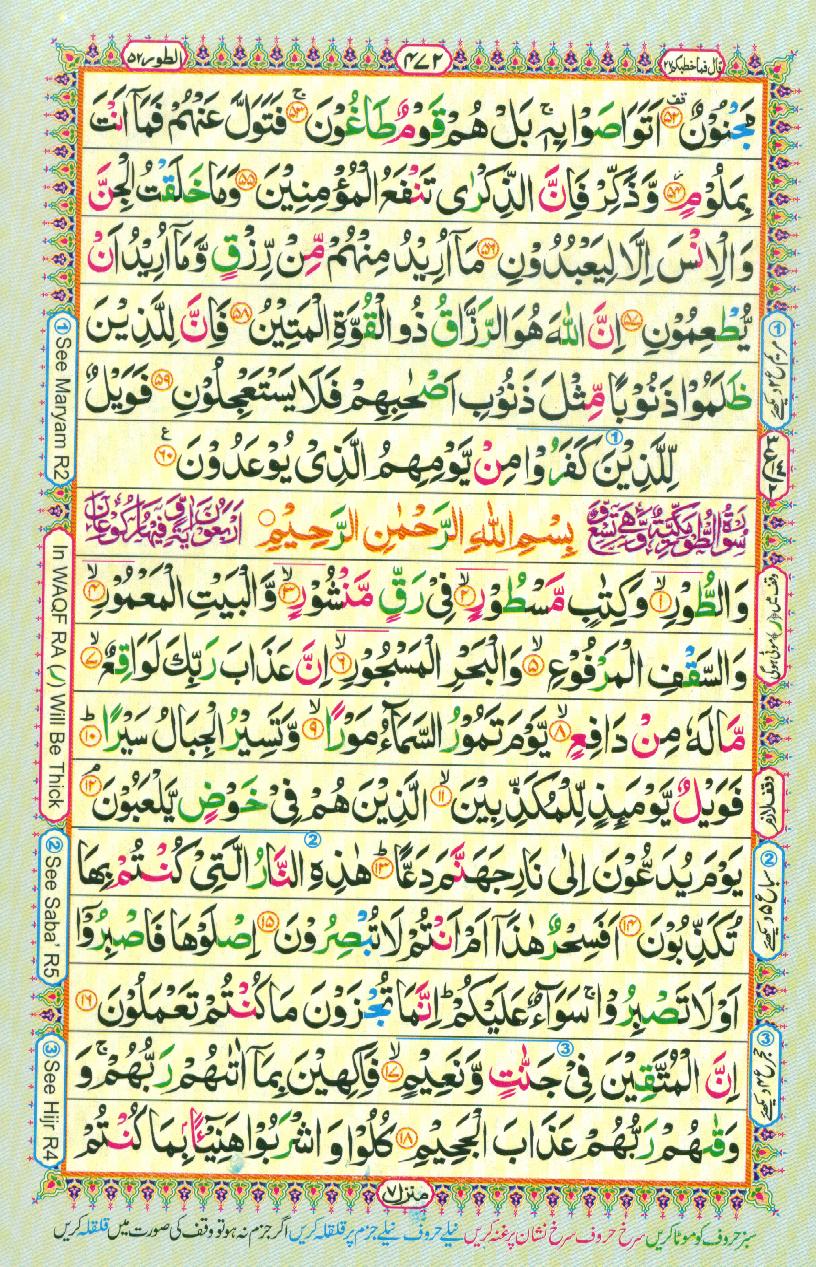 قال فما خطبكم ۲۷
۴۷۲
الطور ۵۲
مَّجْنُوْنٌ ﴿۵۲﴾ اَتَوَاصَوْا بِهٖ ۚ بَلْ هُمْ قَوْمٌ طَاغُوْنَ ﴿۵۳﴾ ۚ فَتَوَلَّ عَنْهُمْ فَمَاۤ اَنْتَ
بِمَلُوْمٍ ﴿۵۴﴾ وَّ ذَكِّرْ فَاِنَّ الذِّكْرٰى تَنْفَعُ الْمُؤْمِنِيْنَ ﴿۵۵﴾ وَمَا خَلَقْتُ الْجِنَّ
وَالْاِنْسَ اِلَّا لِيَعْبُدُوْنِ ﴿۵۶﴾ مَاۤ اُرِيْدُ مِنْهُمْ مِّنْ رِّزْقٍ وَّ مَاۤ اُرِيْدُ اَنْ
يُّطْعِمُوْنِ ﴿۵۷﴾ اِنَّ اللّٰهَ هُوَ الرَّزَّاقُ ذُو الْقُوَّةِ الْمَتِيْنُ ﴿۵۸﴾ فَاِنَّ لِلَّذِيْنَ
ظَلَمُوْا ذَنُوْبًا مِّثْلَ ذَنُوْبِ اَصْحٰبِهِمْ فَلَا يَسْتَعْجِلُوْنِ ﴿۵۹﴾ فَوَيْلٌ
لِّلَّذِيْنَ كَفَرُوْا مِنْ يَّوْمِهِمُ الَّذِىْ يُوْعَدُوْنَ ﴿۶۰﴾
بِسْمِ اللهِ الرَّحْمٰنِ الرَّحِيْمِ
وَالطُّوْرِ ﴿۱﴾ۙ وَكِتٰبٍ مَّسْطُوْرٍ ﴿۲﴾ۙ فِىْ رَقٍّ مَّنْشُوْرٍ ﴿۳﴾ۙ وَّالْبَيْتِ الْمَعْمُوْرِ ﴿۴﴾ۙ
وَالسَّقْفِ الْمَرْفُوْعِ ﴿۵﴾ۙ وَالْبَحْرِ الْمَسْجُوْرِ ﴿۶﴾ۙ اِنَّ عَذَابَ رَبِّكَ لَوَاقِعٌ ﴿۷﴾ۙ
مَّا لَهٗ مِنْ دَافِعٍ ﴿۸﴾ۙ يَّوْمَ تَمُوْرُ السَّمَآءُ مَوْرًا ﴿۹﴾ۙ وَّتَسِيْرُ الْجِبَالُ سَيْرًا ﴿۱۰﴾ؕ
فَوَيْلٌ يَّوْمَئِذٍ لِّلْمُكَذِّبِيْنَ ﴿۱۱﴾ۙ الَّذِيْنَ هُمْ فِىْ خَوْضٍ يَّلْعَبُوْنَ ﴿۱۲﴾ۘ
يَوْمَ يُدَعُّوْنَ اِلٰى نَارِ جَهَنَّمَ دَعًّا ﴿۱۳﴾ؕ هٰذِهِ النَّارُ الَّتِىْ كُنْتُمْ بِهَا
تُكَذِّبُوْنَ ﴿۱۴﴾ اَفَسِحْرٌ هٰذَاۤ اَمْ اَنْتُمْ لَا تُبْصِرُوْنَ ﴿۱۵﴾ اِصْلَوْهَا فَاصْبِرُوْۤا
اَوْ لَا تَصْبِرُوْا ۚ سَوَآءٌ عَلَيْكُمْ ؕ اِنَّمَا تُجْزَوْنَ مَا كُنْتُمْ تَعْمَلُوْنَ ﴿۱۶﴾
اِنَّ الْمُتَّقِيْنَ فِىْ جَنّٰتٍ وَّنَعِيْمٍ ﴿۱۷﴾ۙ فٰكِهِيْنَ بِمَاۤ اٰتٰىهُمْ رَبُّهُمْ ۚ وَ
وَقٰىهُمْ رَبُّهُمْ عَذَابَ الْجَحِيْمِ ﴿۱۸﴾ كُلُوْا وَاشْرَبُوْا هَنِيْٓئًۢا بِمَا كُنْتُمْ
① See Maryam R2
In WAQF RA (ر) Will Be Thick
② See Saba' R5
③ See Hijr R4
① مریم ع ۲ دیکھئے
وقف میں (ر) موٹی ہوگی
وقف لازم
② سباع ۵ دیکھئے
③ حجر ع ۴ دیکھئے
منزل ۷
سبز حروف کو موٹا کریں سرخ حروف سرخ نشان پر غنہ کریں نیلے حروف نیلے جزم پر قلقلہ کریں اگر جزم نہ ہو تو وقف کی صورت میں قلقلہ کریں